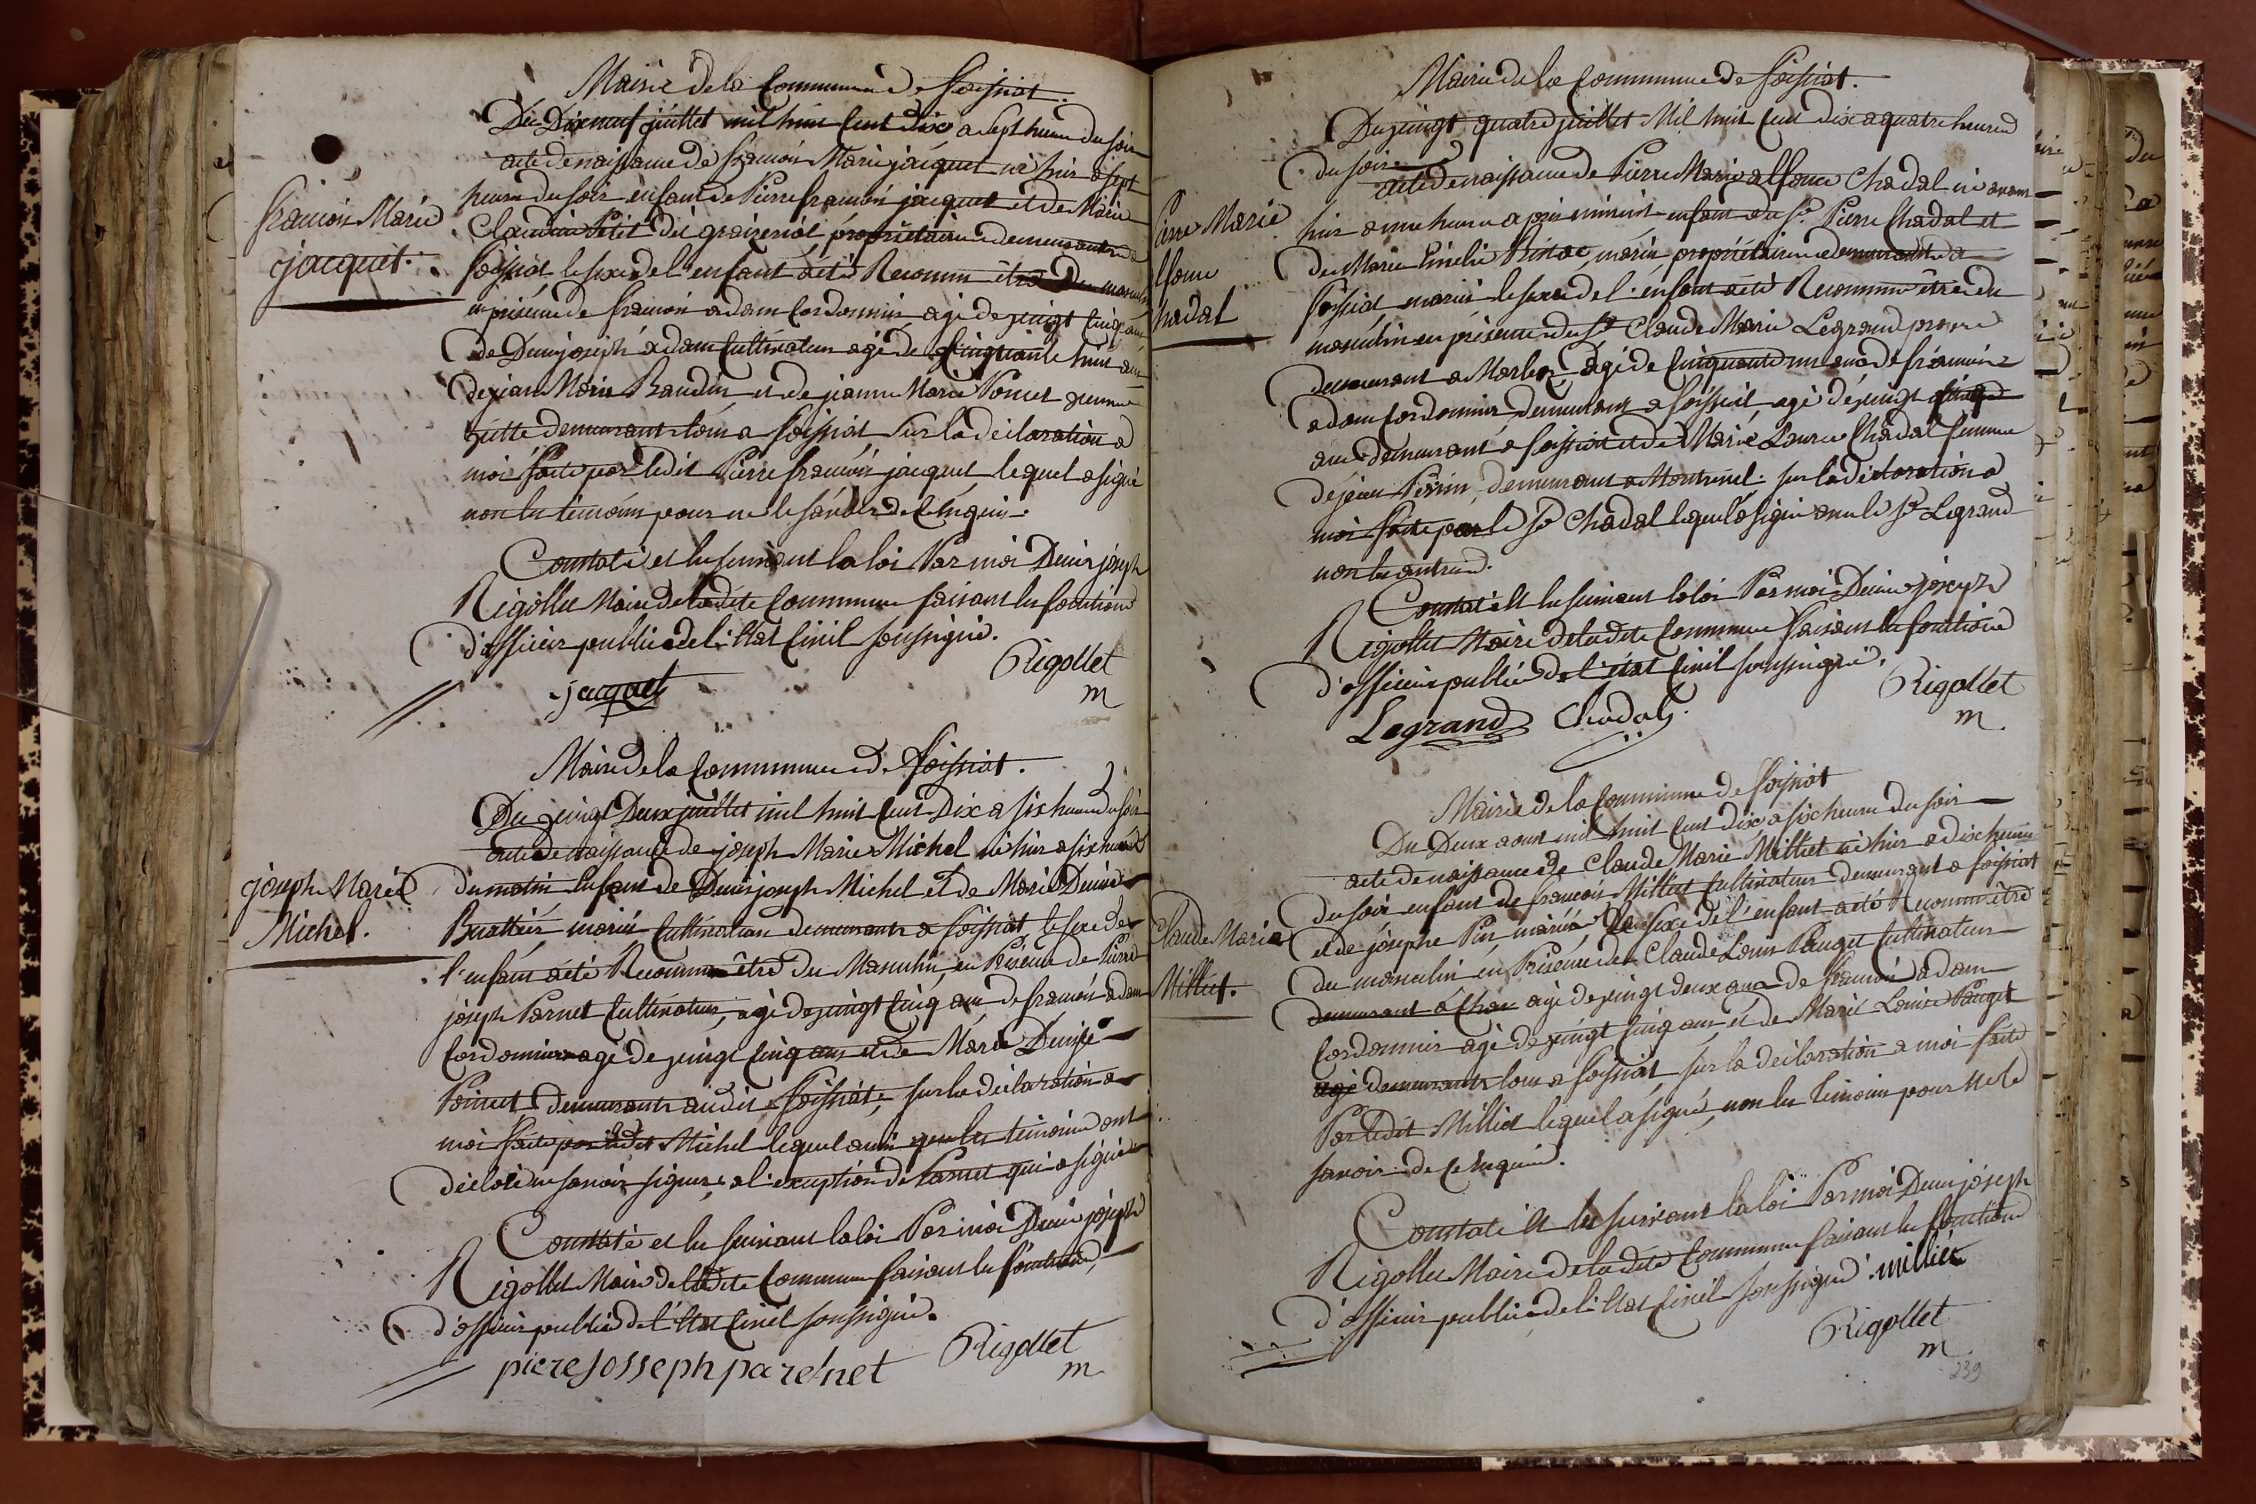 Mairie de la Commune de foissiat.
Du Dix neuf juillet mil huit cent dix a sept heures du soir
acte de naissance de françois Marie jacquet né hier a sept
heures du soir enfant de Pierre françois jacquet et de Marie
Claudine Petit dit propriétaires demeurants a
foissiat le sexe de l'enfant a été Reconnu être du masculin
en présence de françois adam Cordonnier agé de vingt cinq ans
de Denis joseph adam Cultivateur agé de Cinquante huit ans
de jean Marie Baudin et de jeanne Marie Poncet femme
demeurants tous a foissiat Sur la déclaration a
moi faite par ledit Pierre françois jacquet lequel a signé
non les témoins pour ne le savoir de ce Enquis.
Constaté et lu suivant la loi Par moi Denis joseph
Rigollet Maire de ladite Commune faisant les fonctions
d'officier public de l'Etat Civil soussigné.
Rigollet
m
jacquet
françois Marie
jacquet.
Mairie de la Commune de foissiat.
Du vingt Deux juillet mil huit Cent Dix a six heures du soir
acte de naissance de joseph Marie Michel né hier a six heures
du matin Enfant de Denis joseph Michel et de Marie Denise
Buathier mariés Cultivateurs demeurants a foissiat, le sexe de
l'enfant a été Reconnu être du Masculin, en Présence de Pierre
joseph Parnet Cultivateur, agé de vingt Cinq ans de françois adam
Cordonnier agé de vingt Cinq ans et de Marie Denise
Poncet demeurants audit foissiat, sur la déclaration a
moi faite par ledit Michel lequel ainsi que les témoins ont
déclaré ne savoir signer a l'exception de Parnet qui a signé
Constaté et lu suivant la loi Par moi Denis joseph
Rigollet Maire de ladite Commune faisant les fonctions,
d'officier public de l'Etat Civil soussigné.
Rigollet
m
piere josseph parenet
joseph Marie
Michel.
Mairie de la Commune de foissiat.
Du vingt quatre juillet Mil huit Cent dix a quatre heures
du soir
acte de naissance de Pierre Marie alfonse Chadal né avant
hier a une heure apres minuit enfant du Sr Pierre Chadal et
de Marie Emelie mariés propriétaires demeurants a
foissiat mariés le sexe de l'enfant a été Reconnu être du
masculin en présence du Sr Claude Marie Legrand
demeurant a Marboz, agé de Cinquante un ans de françois
adam Cordonnier demeurant a foissiat, agé de vingt cinq
ans demeurant a foissiat et de Marie Laurence Chadal femme
de jean Perrin, demeurant a Montrevel. sur la déclaration a
moi faite par le Sr Chadal lequel a signé avec le Sr Legrand
non les autres.
Constaté et lu suivant la loi Par moi Denis joseph
Rigollet Maire de ladite Commune faisant les fonctions
d'officier public de l'état Civil soussigné.
Rigollet
m
Legrand Chadal
Pierre Marie
lfonse
hadal
Mairie de la Commune de foissiat
Du Deux aout mil huit Cent dix a six heures du soir
acte de naissance de Claude Marie Milliet né hier a dix heures
du soir enfant de francois Milliet Cultivateur demeurant a foissiat
et de josephe Pin, mariés, le sexe de l'enfant a été Reconnu être
du masculin en Présence de Claude Louis Pauget Cultivateur
demeurant a agé de vingt deux ans de francois adam
Cordonnier agé de vingt cinq ans et de Marie Louise Pauget
agé demeurants tous a foissiat sur la déclaration a moi faite
Par ledit Milliet lequel a signé, non les témoins pour ne le
savoir de ce Enquis.
Constaté et lu suivant la loi Par moi Denis joseph
Rigollet Maire de ladite Commune faisant les fonctions
d'officier public de l'Etat Civil soussigné milliet
Rigollet
m
239
Claude Marie
Milliet.